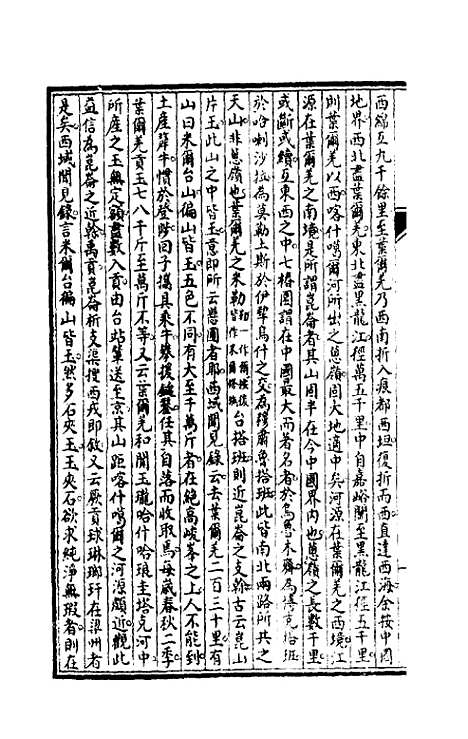 西綿亙九千餘里至葉爾羌乃西南折入痕都西垣復折而西直達西海余按中國
地界西北盡葉爾羌東北盡黑龍江經萬五千里中自嘉峪關至黑龍江徑五千里
則葉爾羌以西喀什噶爾河所出之蔥嶺固大地適中矣河源在葉爾羌之西境江
源在葉爾羌之南境是所謂崑崙者其山周半在今中國界內也蔥嶺之長數千里
或斷或續互東西之中七椿園謂在中國最大而著名者於烏魯木齊為博克搭班
於哈喇沙拉為莫勒土斯於伊犁烏什之交為穆肅魯搭班此皆南北兩路所共之
天山非蔥嶺也葉爾羌之米勒台搭班則近崑崙之支榦古云崑山
片玉此山之中皆玉意即所云懸圃者耶西域聞見錄云去葉爾羌二百三十里有
山曰米爾台山徧山皆玉五色不同有大至千萬斤者在絕高峻峯之上人不能到
土產犛牛慣於登陟回子攜具乘牛攀援鎚鑿任其自落而收取焉每歲春秋二季
葉爾羌貢玉七八千斤至萬斤不等又云葉爾羌和闐玉瓏哈什哈琅圭塔克河中
所產之玉無定額盡數入貢由台站輦送至京其山距喀什噶爾之河源頗近觀此
益信為崑崙之近榦禹貢崑崙析支渠搜西戎即敘又云厥貢球琳瑯玕在梁州者
是矣西域聞見錄言米爾台徧山皆玉然多石夾玉玉夾石欲求純淨無瑕者則在